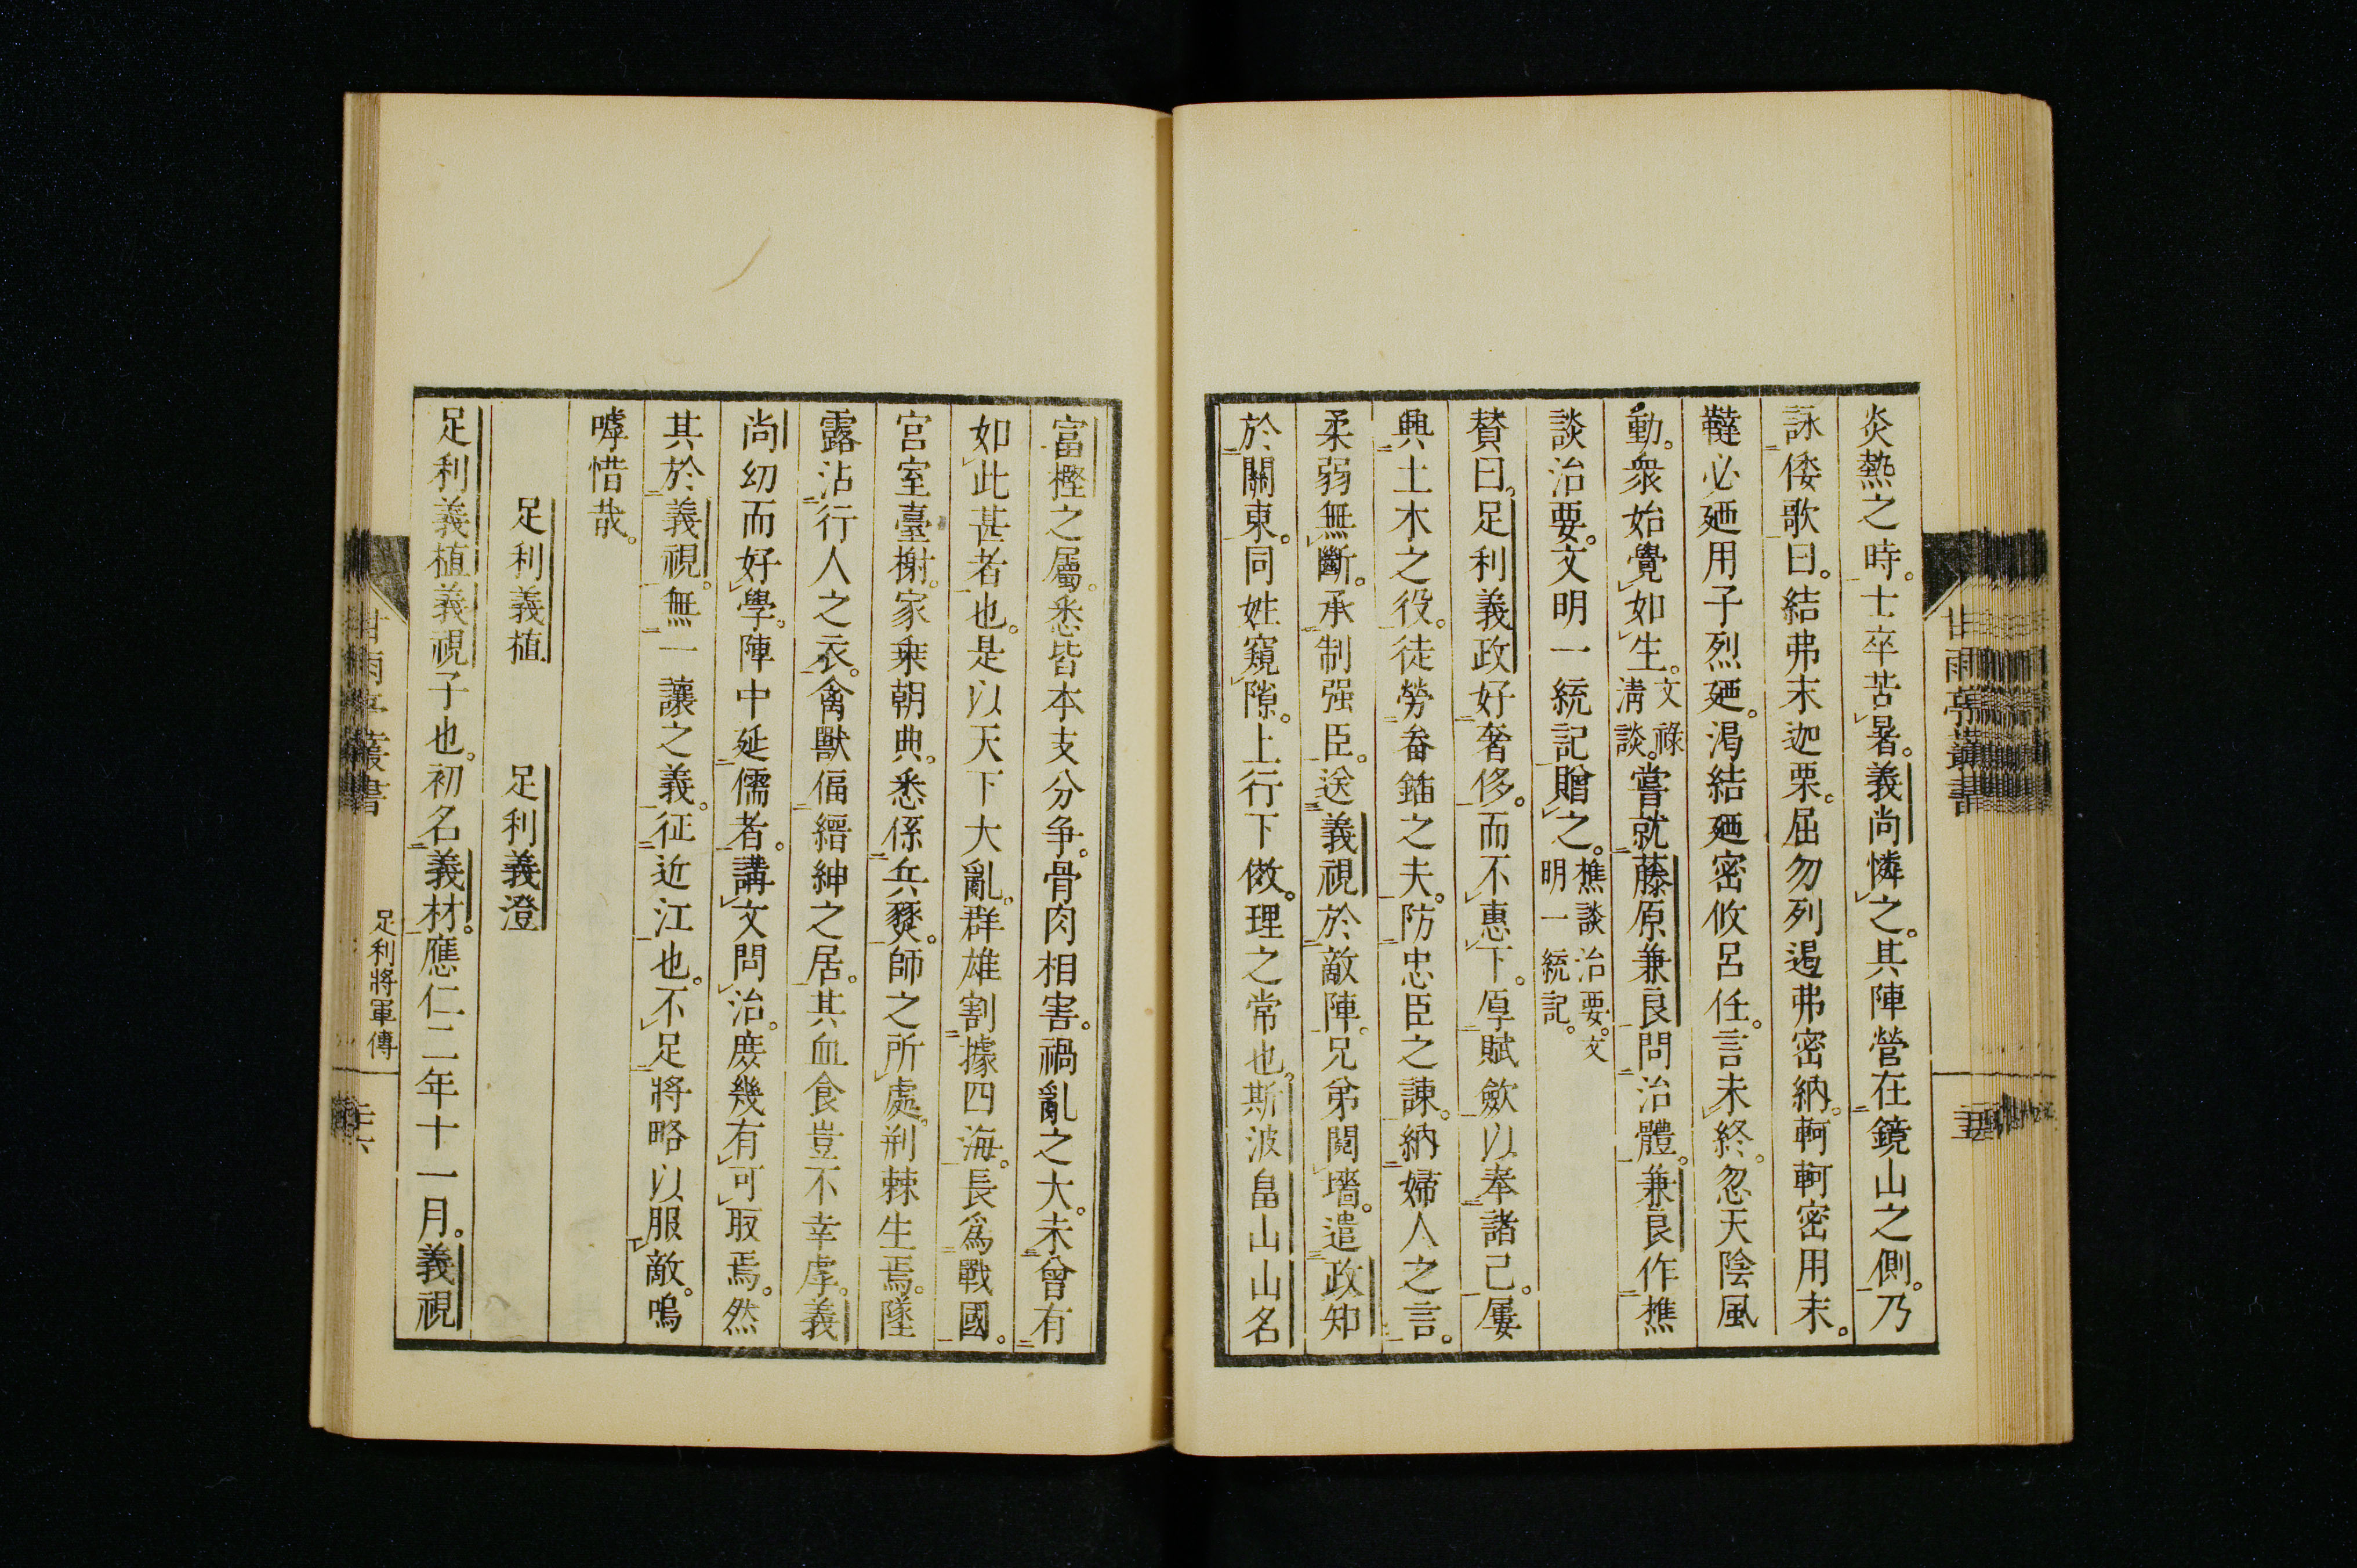 炎熱之時。士卒苦暑。義尚憐之。其陣營在鏡山之側。乃
詠倭歌曰。結弗末迦栗。屈勿列遏弗密納。軻軻密用末。
韃必廼用子烈廼。渴結廼密攸呂任。言未終。忽天陰風
動。衆始覺如生。文祿清談。嘗就藤原兼良問治體。兼良作樵
談治要。文明一統記贈之。樵談治要。文明一統記。
賛曰。足利義政好奢侈。而不惠下。厚賦歛以奉諸己。屢
興土木之役。徒勞畚鍤之夫。防忠臣之諫。納婦人之言。
柔弱無斷。承制强臣。送義視於敵陣。兄弟鬩墻。遣政知
於關東。同姓窺隙。上行下傚。理之常也。斯波畠山山名
富樫之屬。悉皆本支分争。骨肉相害。禍亂之大。未曾有
如此甚者也。是以天下大亂。群雄割據四海。長爲戰國。
宮室臺榭。家乘朝典。悉係兵燹。師之所處。荊棘生焉。墜
露沾行人之衣。禽獸偪縉紳之居。其血食豈不幸虖。義
尚幼而好學。陣中延儒者。講文問治。庶幾有可取焉。然
其於義視。無一讓之義。征近江也。不足將略以服敵。嗚
嘑惜哉。
足利義植　足利義澄
足利義植義視子也。初名義材。應仁二年十一月。義視
甘雨亭叢書
甘雨亭叢書
足利將軍傳